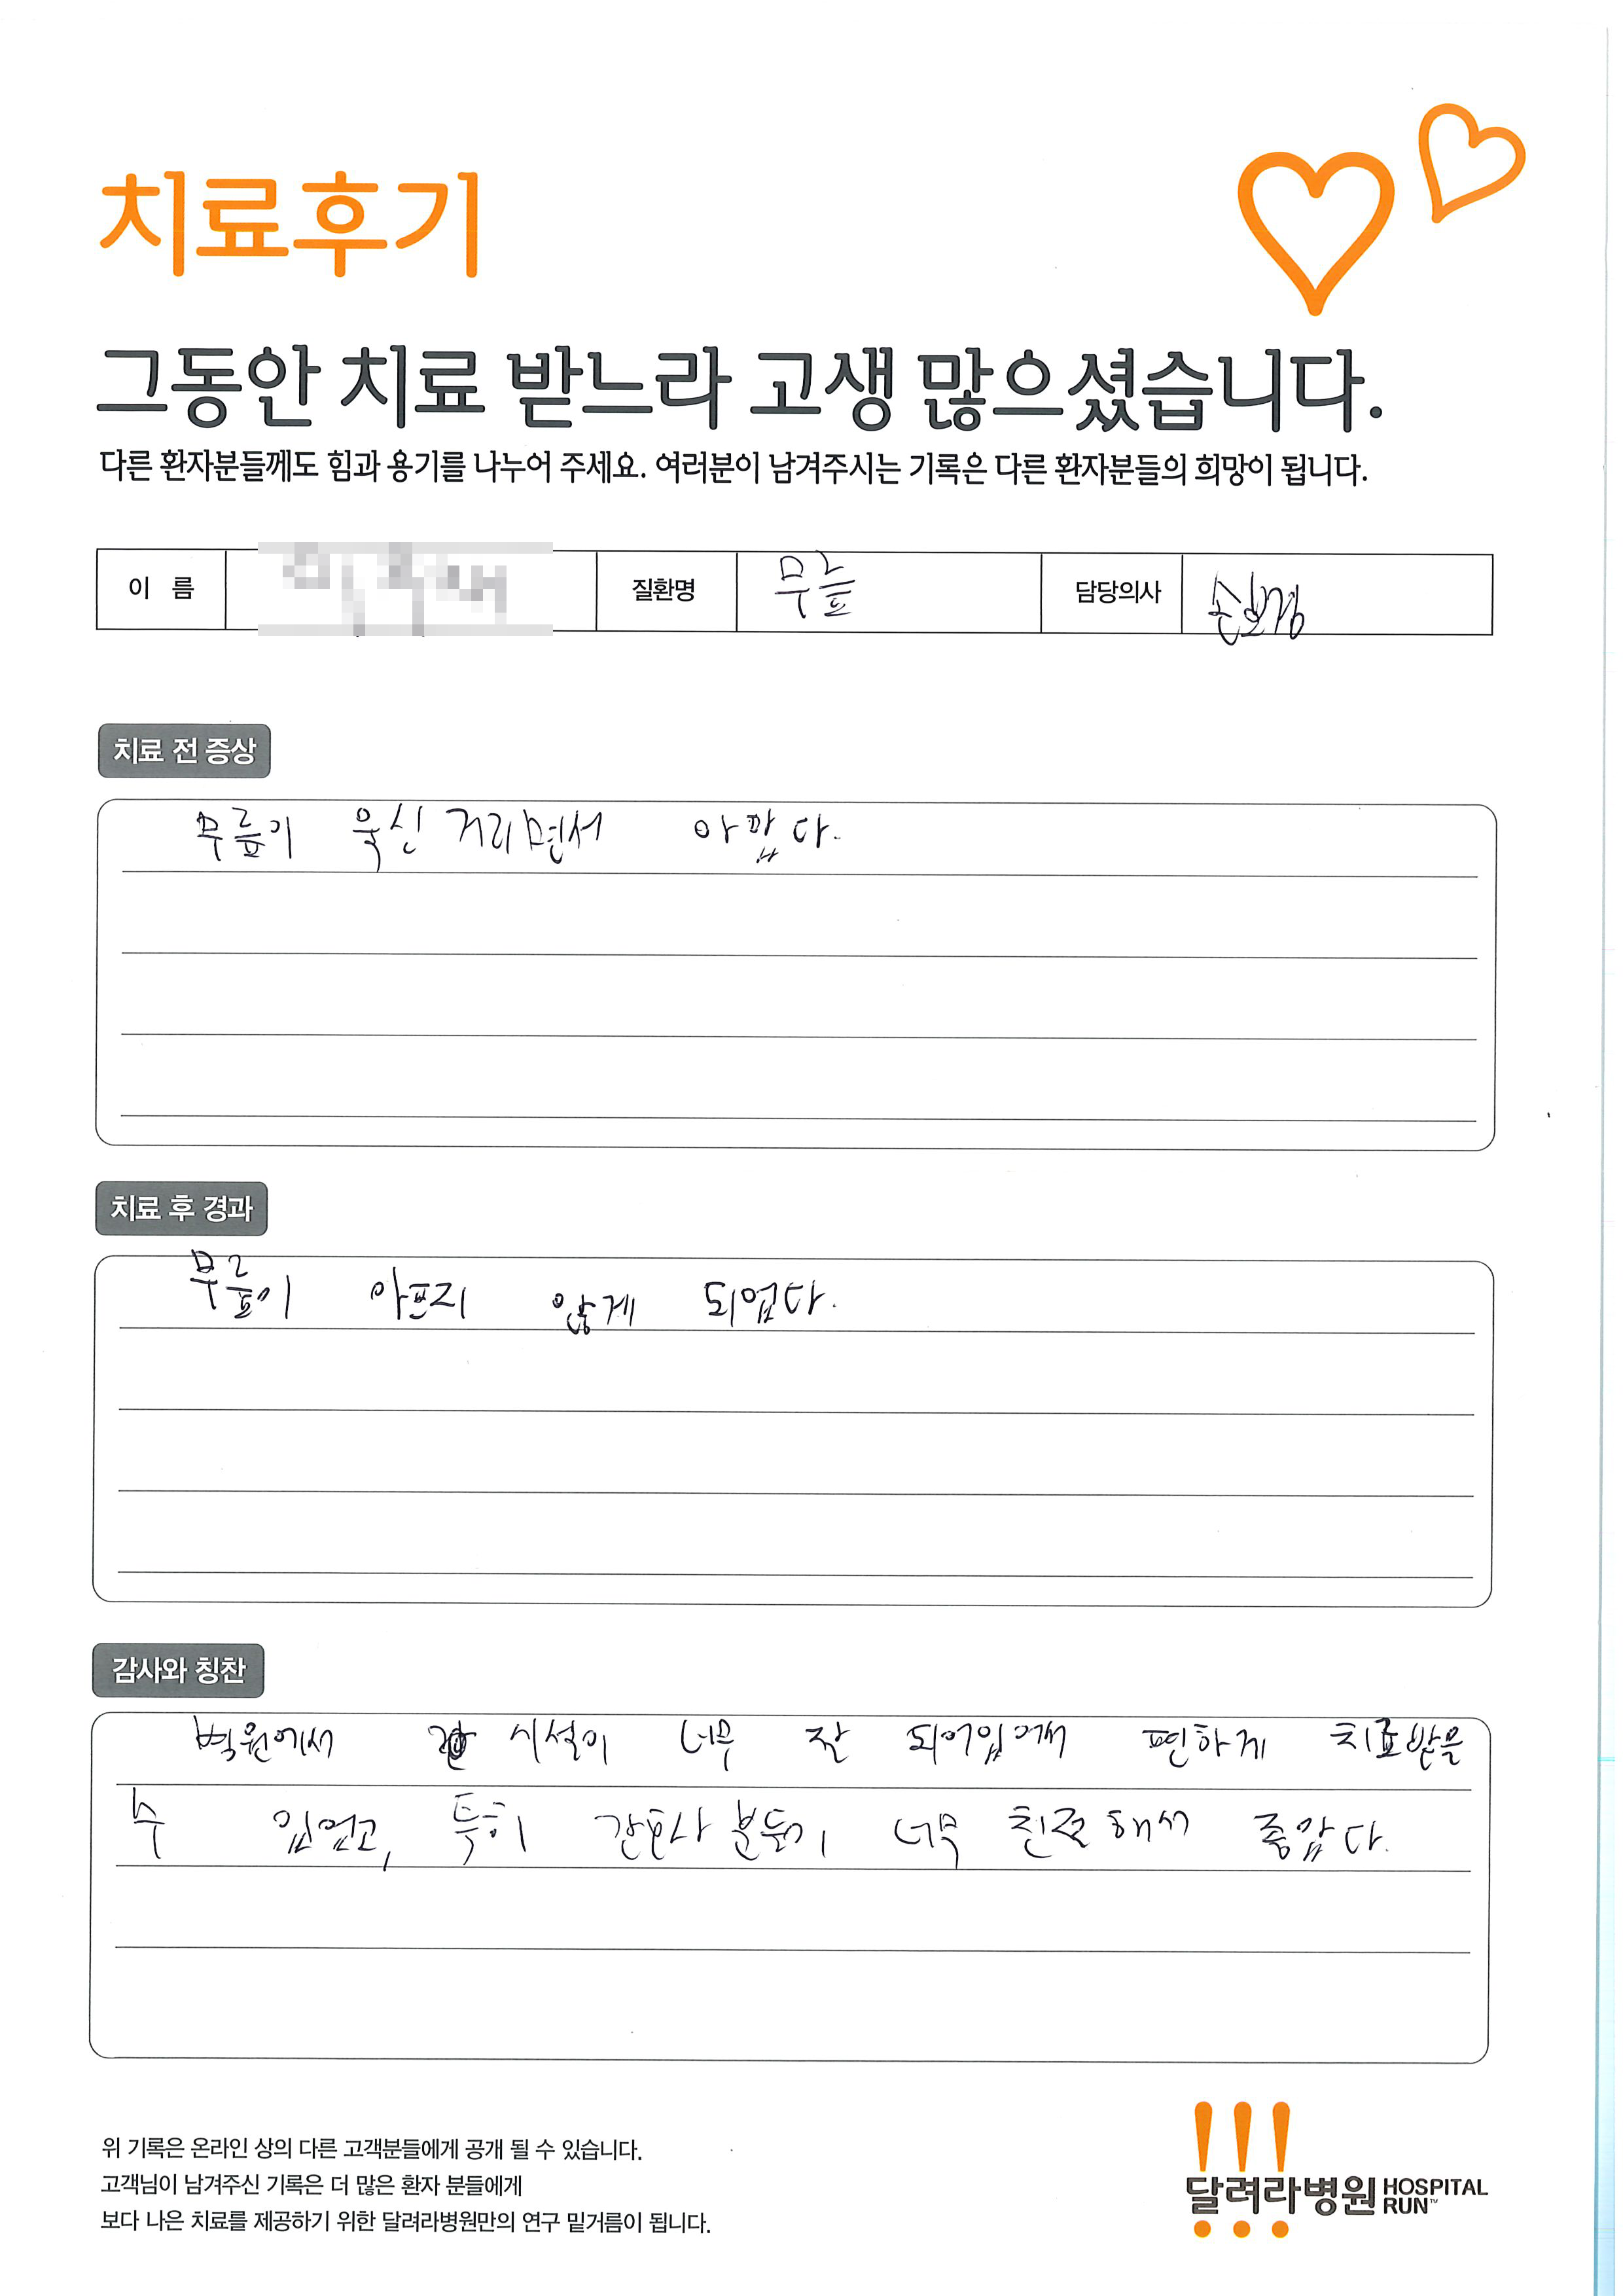 치료후기
그동안 치료 받느라 고생 많으셨습니다.
다른 환자분들께도 힘과 용기를 나누어 주세요. 여러분이 남겨주시는 기록은 다른 환자분들의 희망이 됩니다.
이 름 질환명 무릎 담당의사 손보경
치료 전 증상
무릎이 욱신 거리면서 아팠다.
치료 후 경과
무릎이 아프지 않게 되었다.
감사와 칭찬
병원에서 시설이 너무 잘 되어있어서 편하게 치료받을
수 있었고, 특히 간호사 분들이 너무 친절해서 좋았다.
위 기록은 온라인 상의 다른 고객분들에게 공개 될 수 있습니다.
고객님이 남겨주신 기록은 더 많은 환자 분들에게
보다 나은 치료를 제공하기 위한 달려라병원만의 연구 밑거름이 됩니다.
달려라병원 HOSPITAL RUN™